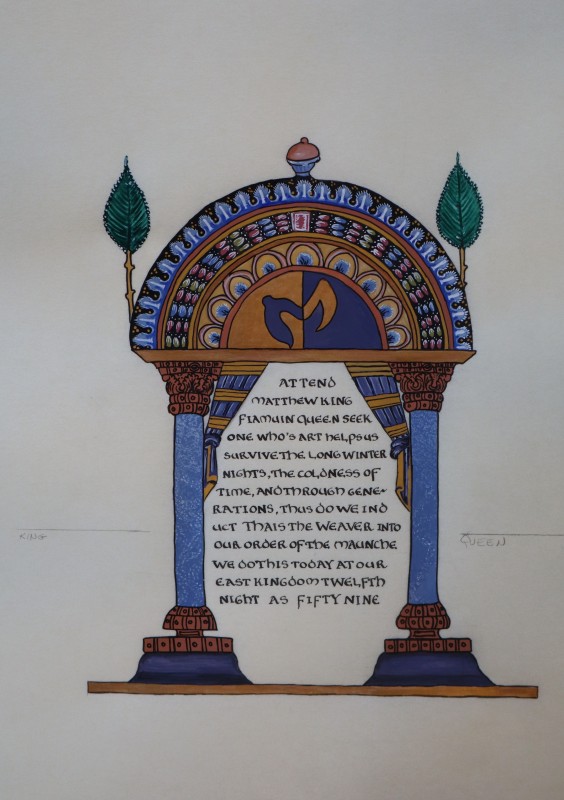 ATTEND
MATTHEW KING
FIAMUIN QUEEN SEEK
ONE WHO'S ART HELPS US
SURVIVE THE LONG WINTER
NIGHTS, THE COLDNESS OF
TIME, AND THROUGH GENE-
RATIONS, THUS DO WE IND
UCT THAIS THE WEAVER INTO
OUR ORDER OF THE MAUNCHE.
WE DO THIS TODAY AT OUR
EAST KINGDOM TWELFTH
NIGHT AS FIFTY NINE
KING
QUEEN